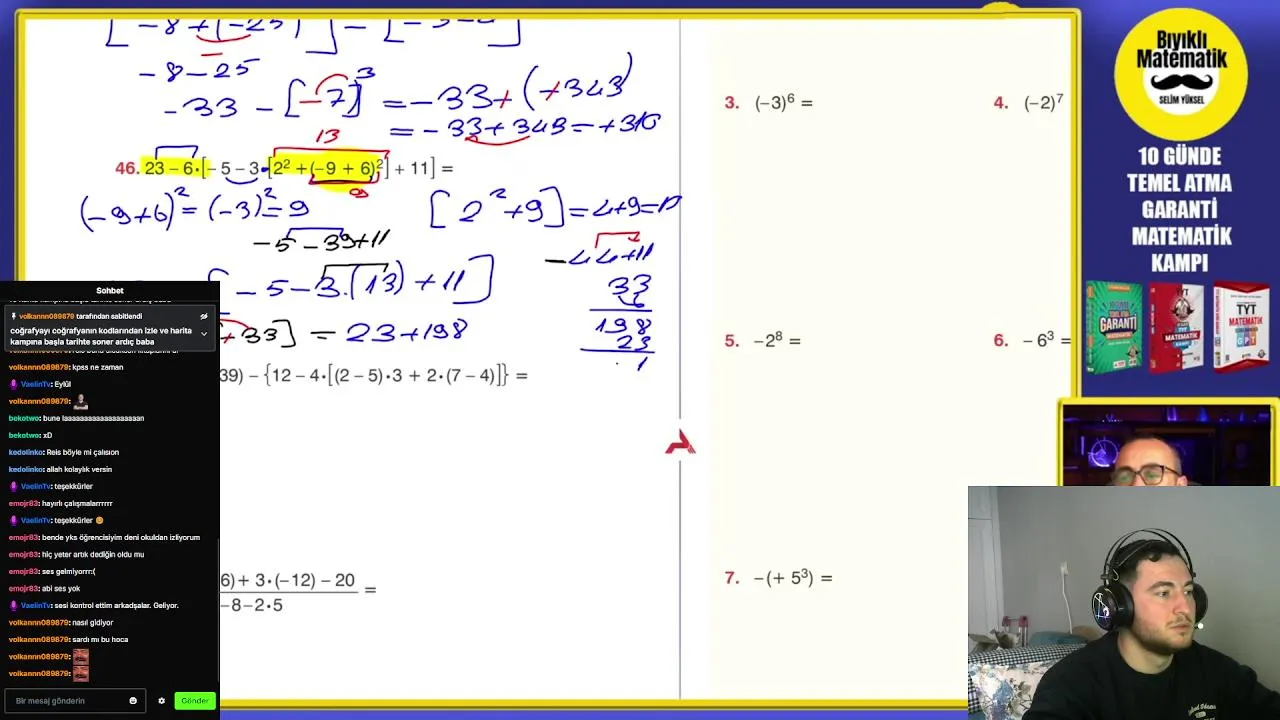 [ -8+(-25) ] - [ -3-4 ]
-8-25
-33 - [-7]³ = -33+(+343)
= -33+343=+310
13
46. 23 – 6•[– 5 – 3•[2² + (–9 + 6)²] + 11] =
9
(-9+6)² = (-3)² = 9
[2²+9] = 4+9=13
-5-39+11
-44+11
[ -5-3.(13)+11 ]
33
6
+33] = 23+198
198
23
1
39) – {12 – 4•[(2 – 5)•3 + 2•(7 – 4)]} =
6) + 3•(–12) – 20
=
–8–2•5
3. (–3)⁶ =
4. (–2)⁷
5. –2⁸ =
6. – 6³ =
7. –(+ 5³) =
Bıyıklı
Matematik
SELİM YÜKSEL
10 GÜNDE
TEMEL ATMA
GARANTİ
MATEMATİK
KAMPI
GARANTİ
TYT
MATEMATİK
TYT
MATEMATİK
GPT
Sohbet
volkannn089879 tarafından sabitlendi
coğrafyayı coğrafyanın kodlarından izle ve harita
kampına başla tarihte soner ardıç baba
volkannn089879: kpss ne zaman
VaelinTv: Eylül
volkannn089879:
bekotwo: bune laaaaaaaaaaaaaaaaaaan
bekotwo: xD
kedolinko: Reis böyle mi çalısıon
kedolinko: allah kolaylık versin
VaelinTv: teşekkürler
emojr83: hayırlı çalışmalarrrrrr
VaelinTv: teşekkürler
emojr83: bende yks öğrencisiyim deni okuldan izliyorum
emojr83: hiç yeter artık dediğin oldu mu
emojr83: ses gelmiyorrr:(
emojr83: abi ses yok
VaelinTv: sesi kontrol ettim arkadşalar. Geliyor.
volkannn089879: nasıl gidiyor
volkannn089879: sardı mı bu hoca
volkannn089879:
volkannn089879:
Bir mesaj gönderin
Gönder